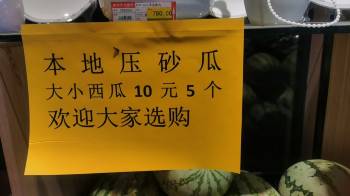 780.00
本地压砂瓜
大小西瓜10元5个
欢迎大家选购